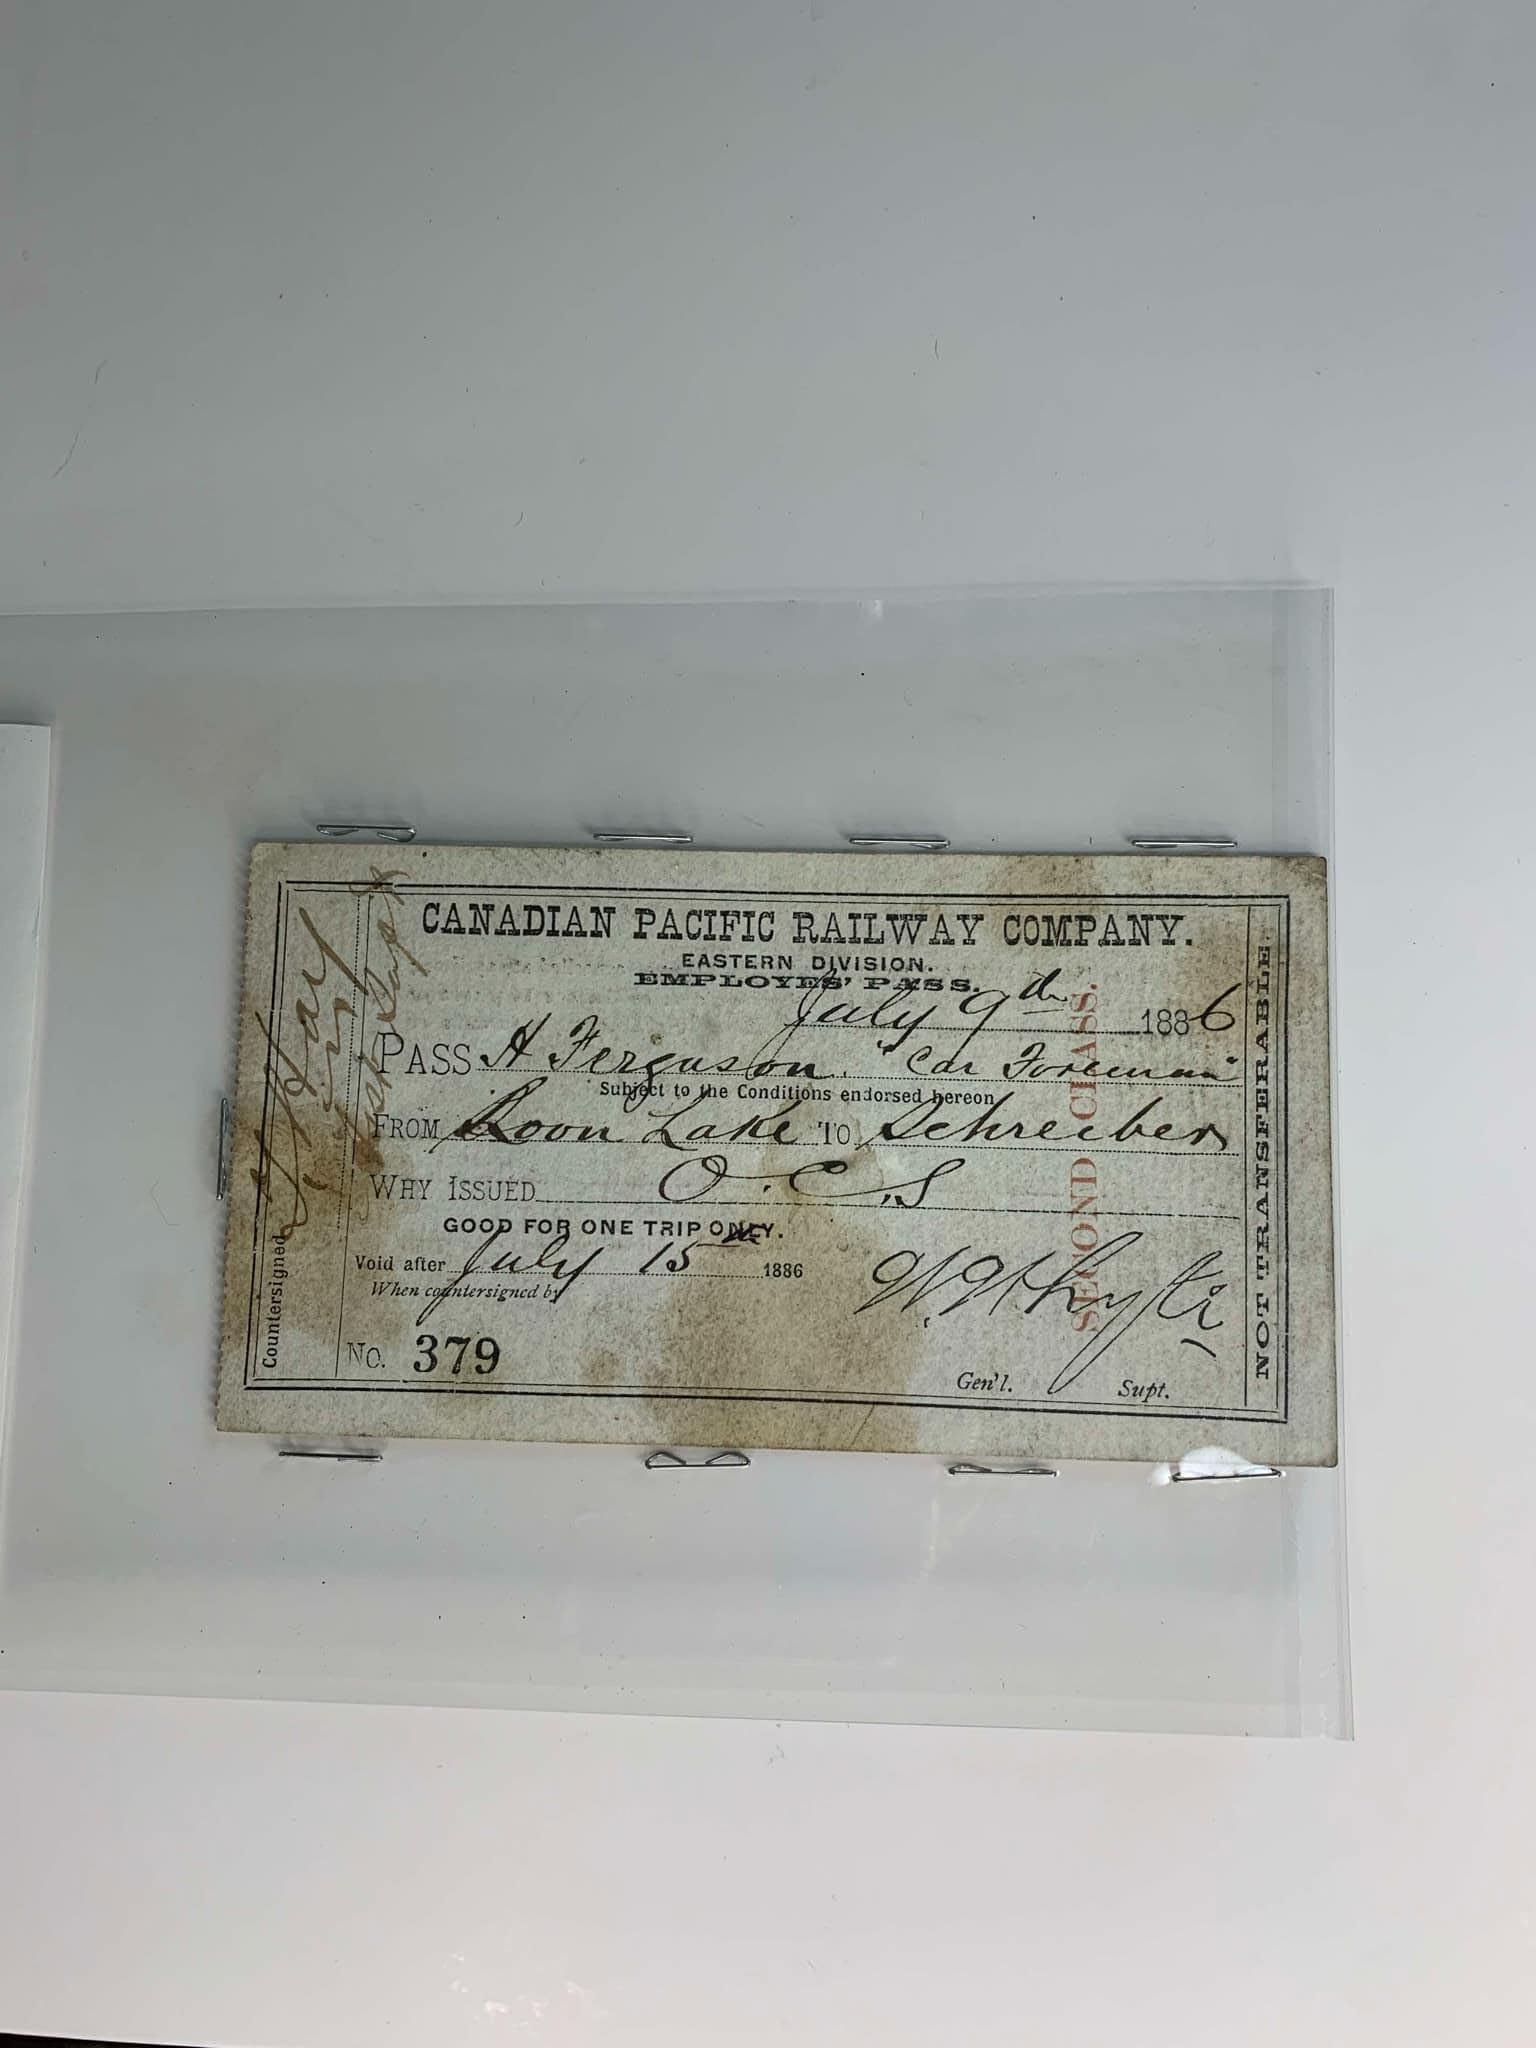 CANADIAN PACIFIC RAILWAY COMPANY.
EASTERN DIVISION.
EMPLOYES' PASS.
July 9th 1886
PASS H Ferguson. "Car Foreman"
Subject to the Conditions endorsed hereon
FROM Loon Lake TO Schreiber
WHY ISSUED O.C.S
GOOD FOR ONE TRIP ONLY.
Void after July 15th 1886
When countersigned by
No. 379
W Whyte
Gen'l. Supt.
SECOND CLASS.
NOT TRANSFERABLE.
Countersigned